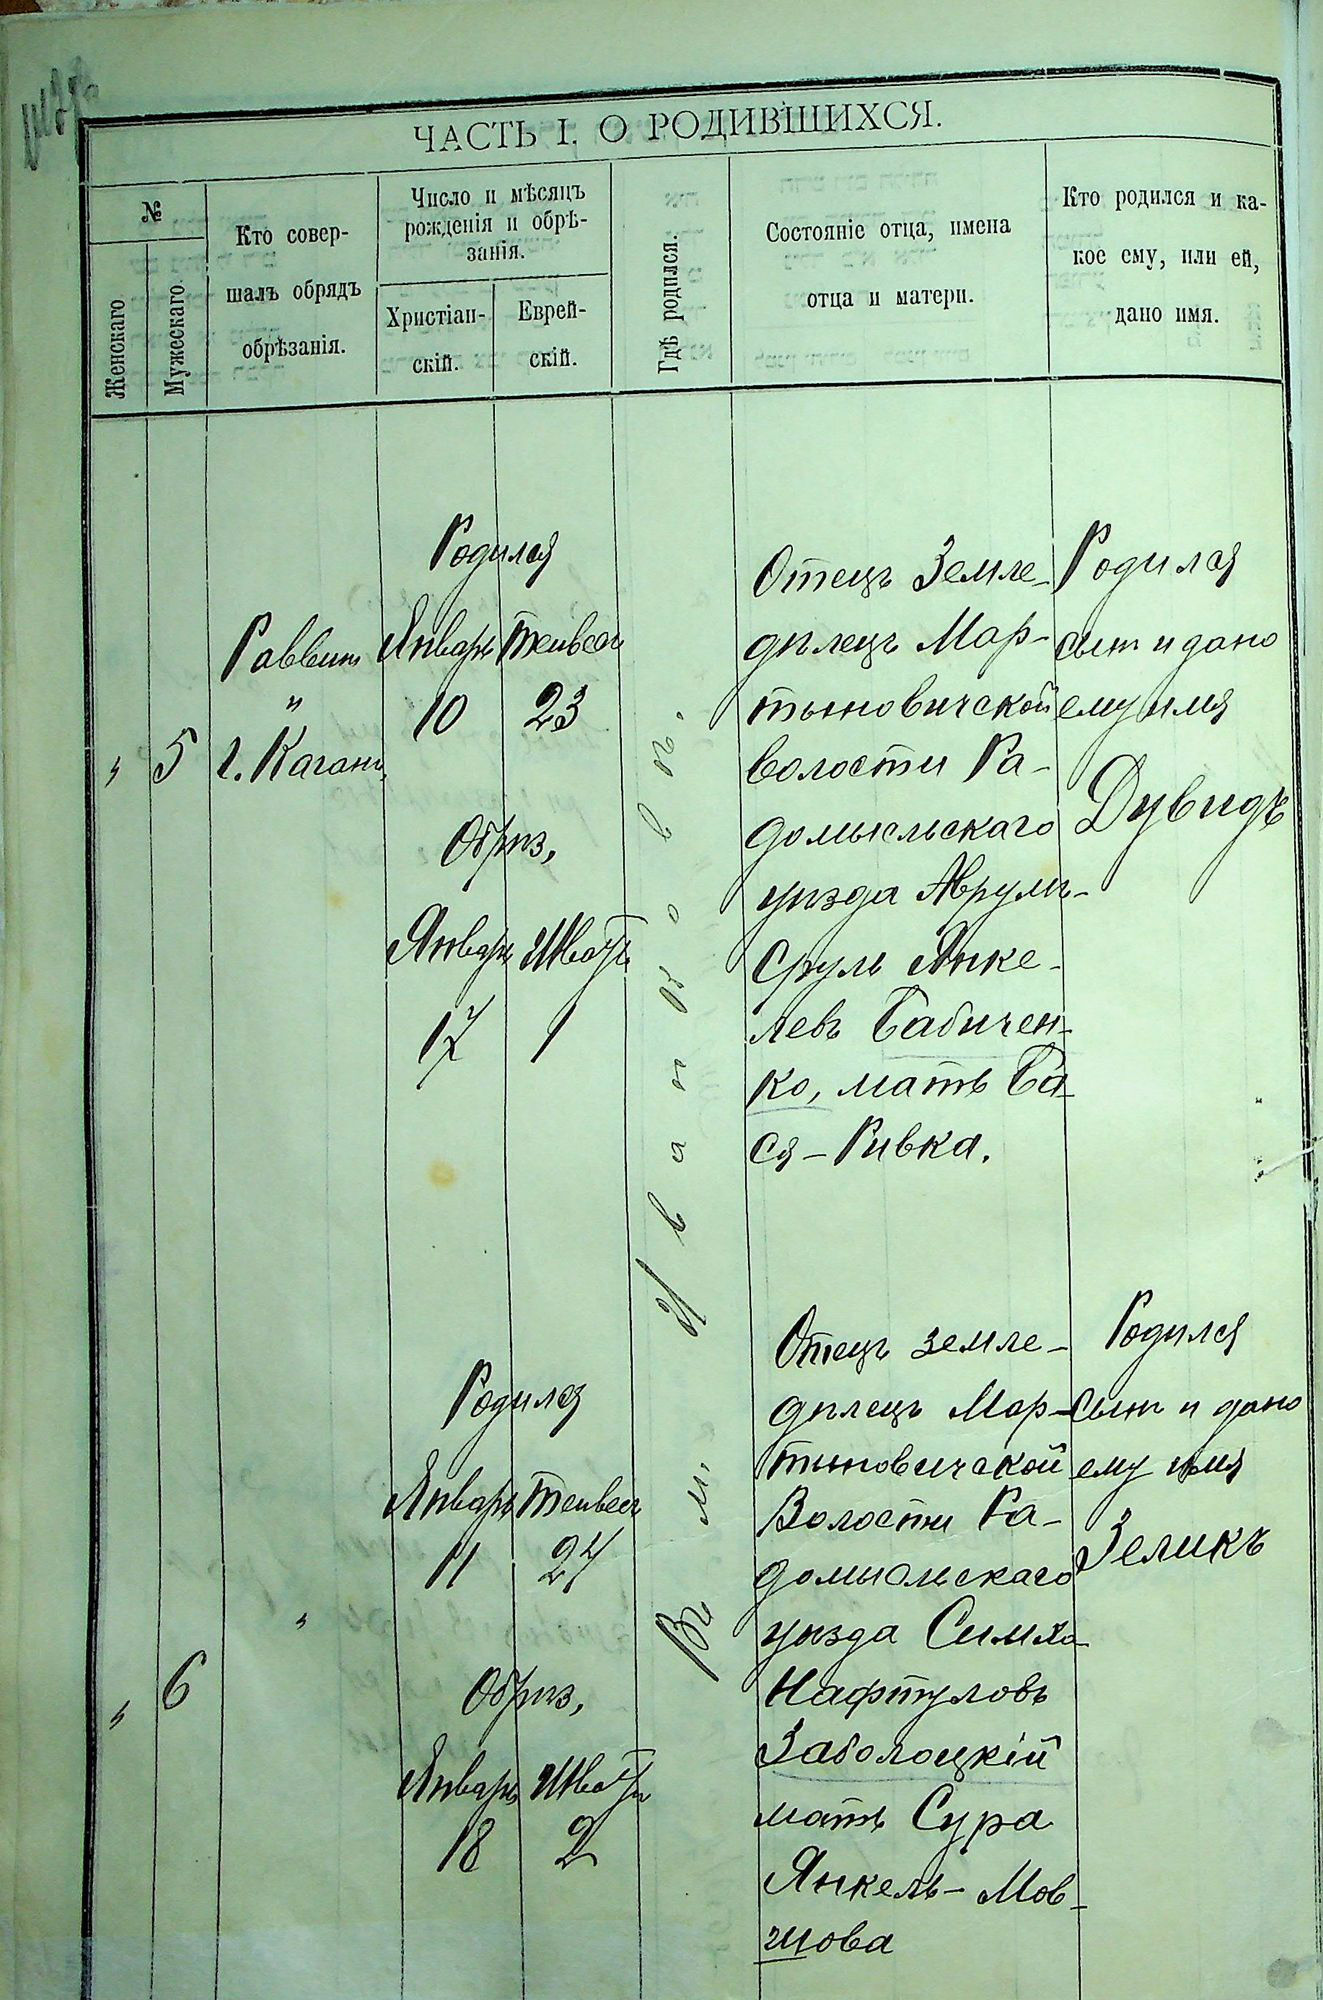 ЧАСТЬ I. О РОДИВШИХСЯ.
№
Женскаго
Мужескаго.
Кто совер-
шалъ обрядъ
обрѣзанія.
Число и мѣсяцъ
рожденія и обрѣ-
занія.
Христіан-
скій.
Еврей-
скій.
Гдѣ родился.
Состояніе отца, имена
отца и матери.
Кто родился и ка-
кое ему, или ей,
дано имя.
"
5
Раввин
"
г. Каганъ
Родился
Январь Тейвесъ
10 23
Обрѣз,
Январь Шватъ
17 1
Въ м. Иванковѣ.
Отецъ Земле-
дѣлецъ Мар-
тыновичской
волости Ра-
домысльскаго
уѣзда Аврумъ-
Сруль Янке-
левъ Бабичен-
ко, мать Ба-
ся-Ривка.
Родился
сынъ и дано
ему имя
Дувидъ
"
6
"
Родился
Январь Тейвесъ
11 24
Обрѣз,
Январь Шватъ
18 2
Отецъ земле-
дѣлецъ Мар-
тыновичской
Волости Ра-
домысльскаго
уѣзда Симха
Нафтуловъ
Заболоцкій
мать Сура
Янкель-Мов-
шова
Родился
сынъ и дано
ему имя
Зеликъ